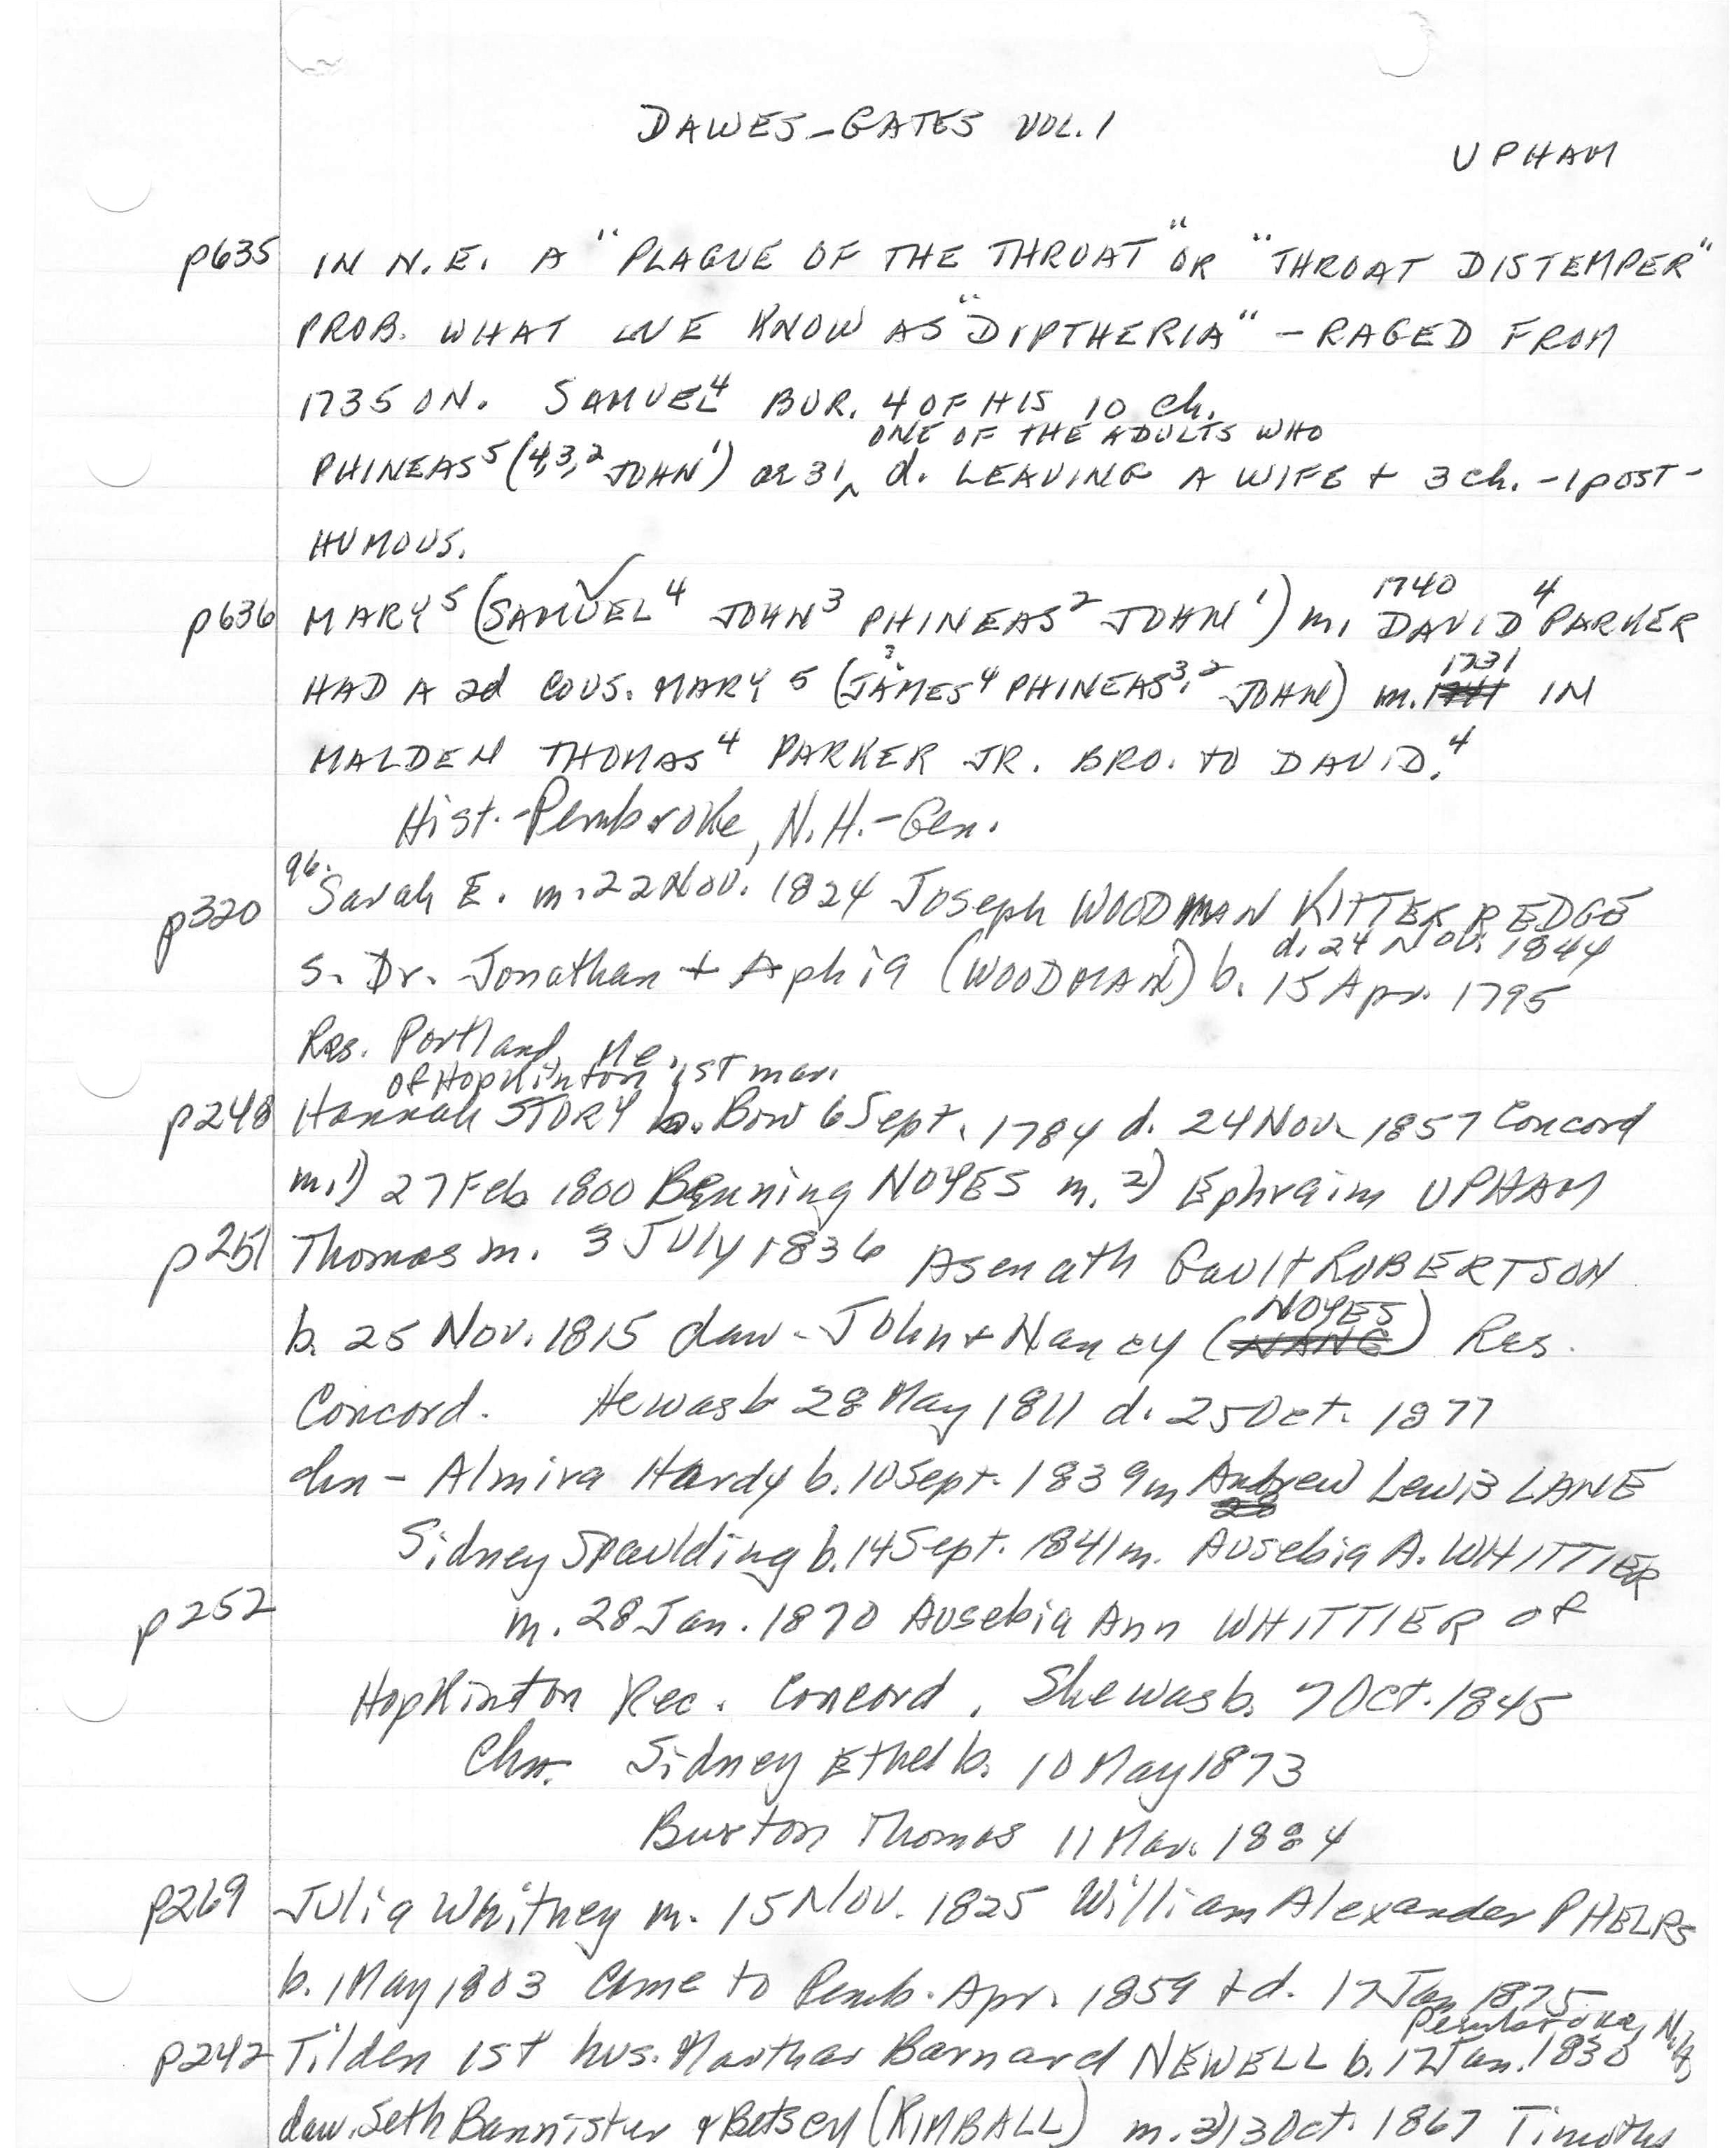 DAWES-GATES VOL. 1
UPHAM
p635 IN N.E. A "PLAGUE OF THE THROAT" OR "THROAT DISTEMPER"
PROB. WHAT WE KNOW AS "DIPTHERIA" - RAGED FROM
1735 ON. SAMUEL⁴ BUR. 4 OF HIS 10 ch.
ONE OF THE ADULTS WHO
PHINEAS⁵ (4,3,2 JOHN¹) ae 31 ^ d. LEAVING A WIFE + 3 ch. - 1 POST-
HUMOUS.
p636 MARY⁵ (SAMUEL⁴ JOHN³ PHINEAS² JOHN¹) m. 1740 DAVID⁴ PARKER
HAD A 2d COUS. MARY 5 (JAMES⁴ PHINEAS³,² JOHN) m. 1731 IN
MALDEN THOMAS⁴ PARKER JR. BRO. TO DAVID.⁴
Hist. - Pembroke, N.H. - Gen.
p320 96. Sarah E. m. 22 Nov. 1824 Joseph WOODMAN KITTEREDGE
d. 24 Nov. 1844
s. Dr. Jonathan + Aphia (WOODMAN) b. 15 Apr. 1795
Res. Portland, Me.
of Hopkinton 1st mar.
p248 Hannah STORY b. Bow 6 Sept. 1784 d. 24 Nov. 1857 Concord
m. 1) 27 Feb 1800 Benning NOYES m. 2) Ephraim UPHAM
p251 Thomas m. 3 July 1836 Asenath Gault ROBERTSON
b. 25 Nov. 1815 daw - John + Nancy (NOYES) Res.
Concord. He was b 28 May 1811 d. 25 Oct. 1877
chn - Almira Hardy b. 10 Sept. 1839 m Andrew Lewis LANE
Sidney Spaulding b. 14 Sept. 1841 m. Ausebia A. WHITTIER
p252 m. 28 Jan. 1870 Ausebia Ann WHITTIER of
Hopkinton Rec. Concord. She was b. 7 Oct. 1845
Chn. Sidney Ethel b. 10 May 1873
Burton Thomas 11 Mar. 1884
p269 Julia Whitney m. 15 Nov. 1825 William Alexander PHELPS
b. 1 May 1803 Came to Pemb. Apr. 1859 + d. 17 Jan 1875
Pembroke, N.H.
p242 Tilden 1st hus. Marthas Barnard NEWELL b. 17 Jan. 1830
daw. Seth Bannister & Betsey (KIMBALL) m. 2) 13 Oct. 1867 Timothy